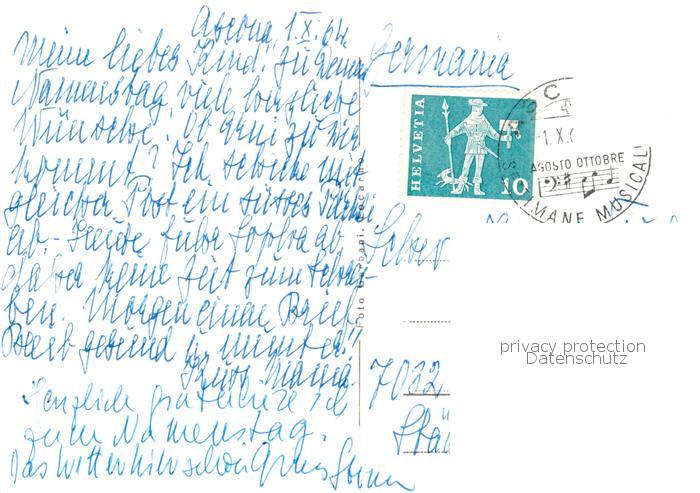 Ascona, 1.X.64.
Meine liebes Kind! Zu Deinem
Namenstag viele herzliche
Wünsche! Ob Geni zu Dir
kommt? Ich schicke mit
gleicher Post ein süsses
ab. Heute fuhr Sophia ab
daher keine Zeit zum Schrei-
ben. Morgen einen Brief.
Bleib gesund u. munter!
Kuss Mama.
Herzlich gratuliere ich
zum Namenstag.
Das Wetter hier schön Gruss
Germania
HELVETIA
10
-1.X.6
AGOSTO OTTOBRE
MANE MUSICALI
Foto Locarno
7032
privacy protection
Datenschutz